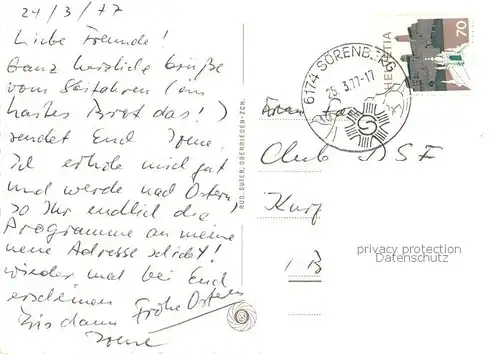 24/3/77
Liebe Freunde!
Ganz herzliche Grüße
vom Skifahren (ein
hartes Brot das!)
sendet Euch Irene.
Ich erhole mich gut
und werde nach Ostern,
so Ihr endlich die
Programme an meine
neue Adresse schickt!
wieder mal bei Euch
erscheinen Frohe Ostern
Bis dann
Irene
RUD. SUTER, OBERRIEDEN-ZCH.
6174 SÖRENBERG
25.3.77-17
HELVETIA
70
Club
Kurf
1 B
privacy protection
Datenschutz